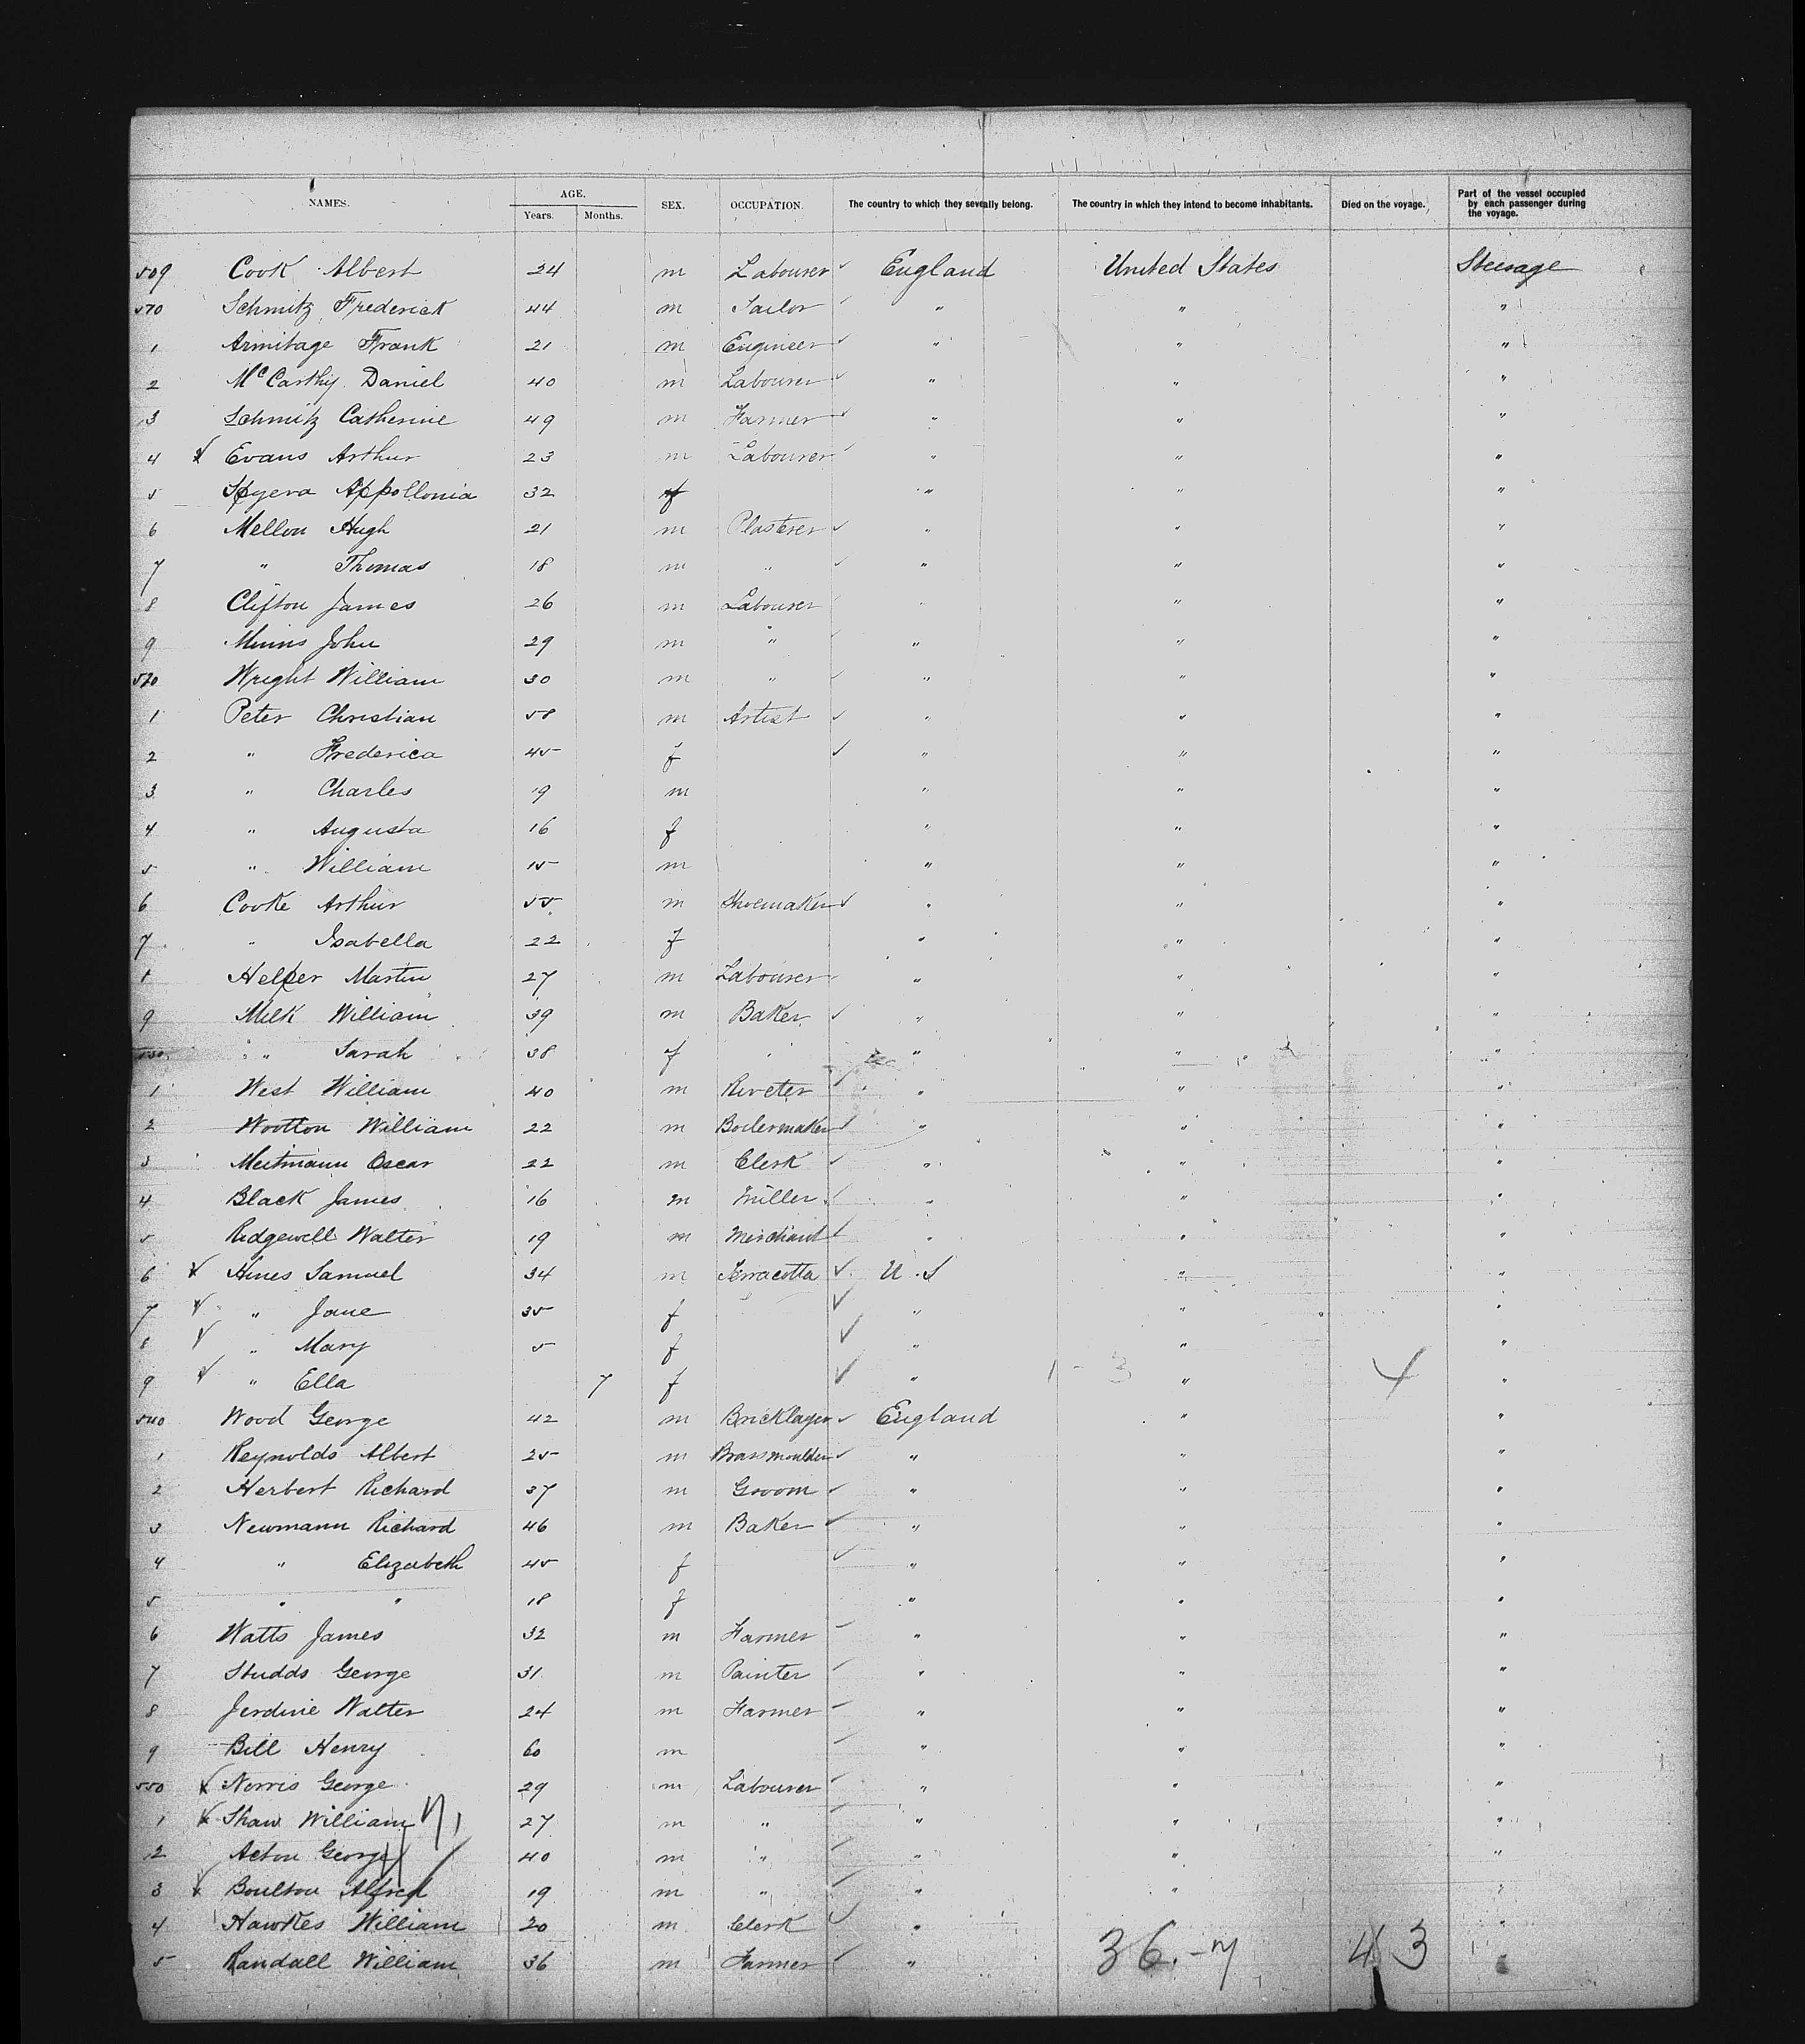 NAMES. AGE. Years. Months. SEX. OCCUPATION. The country to which they severally belong. The country in which they intend to become inhabitants. Died on the voyage. Part of the vessel occupied by each passenger during the voyage.
509 Cook Albert 24 m Labourer ✓ England United States Steerage
570 Schmitz Frederick 44 m Tailor ✓ " " "
1 Armitage Frank 21 m Engineer ✓ " " "
2 McCarthy Daniel 40 m Labourer ✓ " " "
3 Schmitz Catherine 49 m Farmer ✓ " " "
4 Evans Arthur 23 m Labourer ✓ " " "
5 Appollonia 32 f " " "
6 Mellon Hugh 21 m Plasterer ✓ " " "
7 " Thomas 18 m " ✓ " " "
8 Clifton James 26 m Labourer " " "
9 Minns John 29 m " " " "
520 Wright William 30 m " ✓ " " "
1 Peter Christian 58 m Artist ✓ " " "
2 " Frederica 45 f ✓ " " "
3 " Charles 19 m " " "
4 " Augusta 16 f " " "
5 " William 15 m " " "
6 Cooke Arthur 55 m Shoemaker ✓ " " "
7 " Isabella 22 f " " "
8 Helper Martin 27 m Labourer " " "
9 Milk William 39 m Baker ✓ " " "
530 " Sarah 38 f " " "
1 West William 40 m Riveter ✓ " " "
2 Wootton William 22 m Boilermaker ✓ " " "
3 Meitmann Oscar 22 m Clerk ✓ " " "
4 Black James 16 m Miller ✓ " " "
5 Ridgewell Walter 19 m Merchant ✓ " " "
6 Hines Samuel 34 m Terracotta ✓ U.S " "
7 " Jane 35 f ✓ " " "
8 " Mary 5 f ✓ " " "
9 " Ella 7 f ✓ " 1 - 3 " 4 "
540 Wood George 42 m Bricklayer ✓ England " "
1 Reynolds Albert 25 m Brassmoulder ✓ " " "
2 Herbert Richard 37 m Groom ✓ " " "
3 Newmann Richard 46 m Baker ✓ " " "
4 " Elizabeth 45 f ✓ " " "
5 " " 18 f " " "
6 Watts James 32 m Farmer ✓ " " "
7 Studds George 31 m Painter ✓ " " "
8 Jerdine Walter 24 m Farmer ✓ " " "
9 Bill Henry 60 m ✓ " " "
550 Norris George 29 m Labourer ✓ " " "
1 Shaw William 27 m " ✓ " " "
2 Acton George 40 m " ✓ " " "
3 Boulton Alfred 19 m " ✓ " " "
4 Hawkes William 20 m Clerk ✓ " "
5 Randall William 36 m Farmer ✓ " 36.-7 43 "